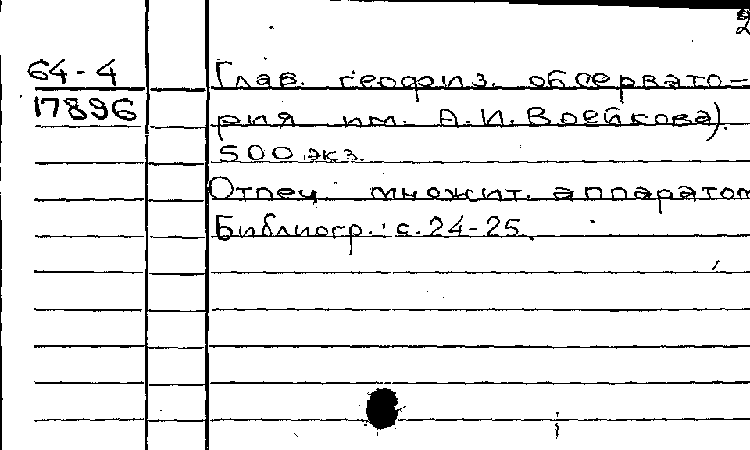 2
64-4
17896
Глав. геофиз. обсервато-
рия им. А.И. Воейкова).
500 экз.
Отпеч множит. аппаратом
Библиогр.: с. 24-25.